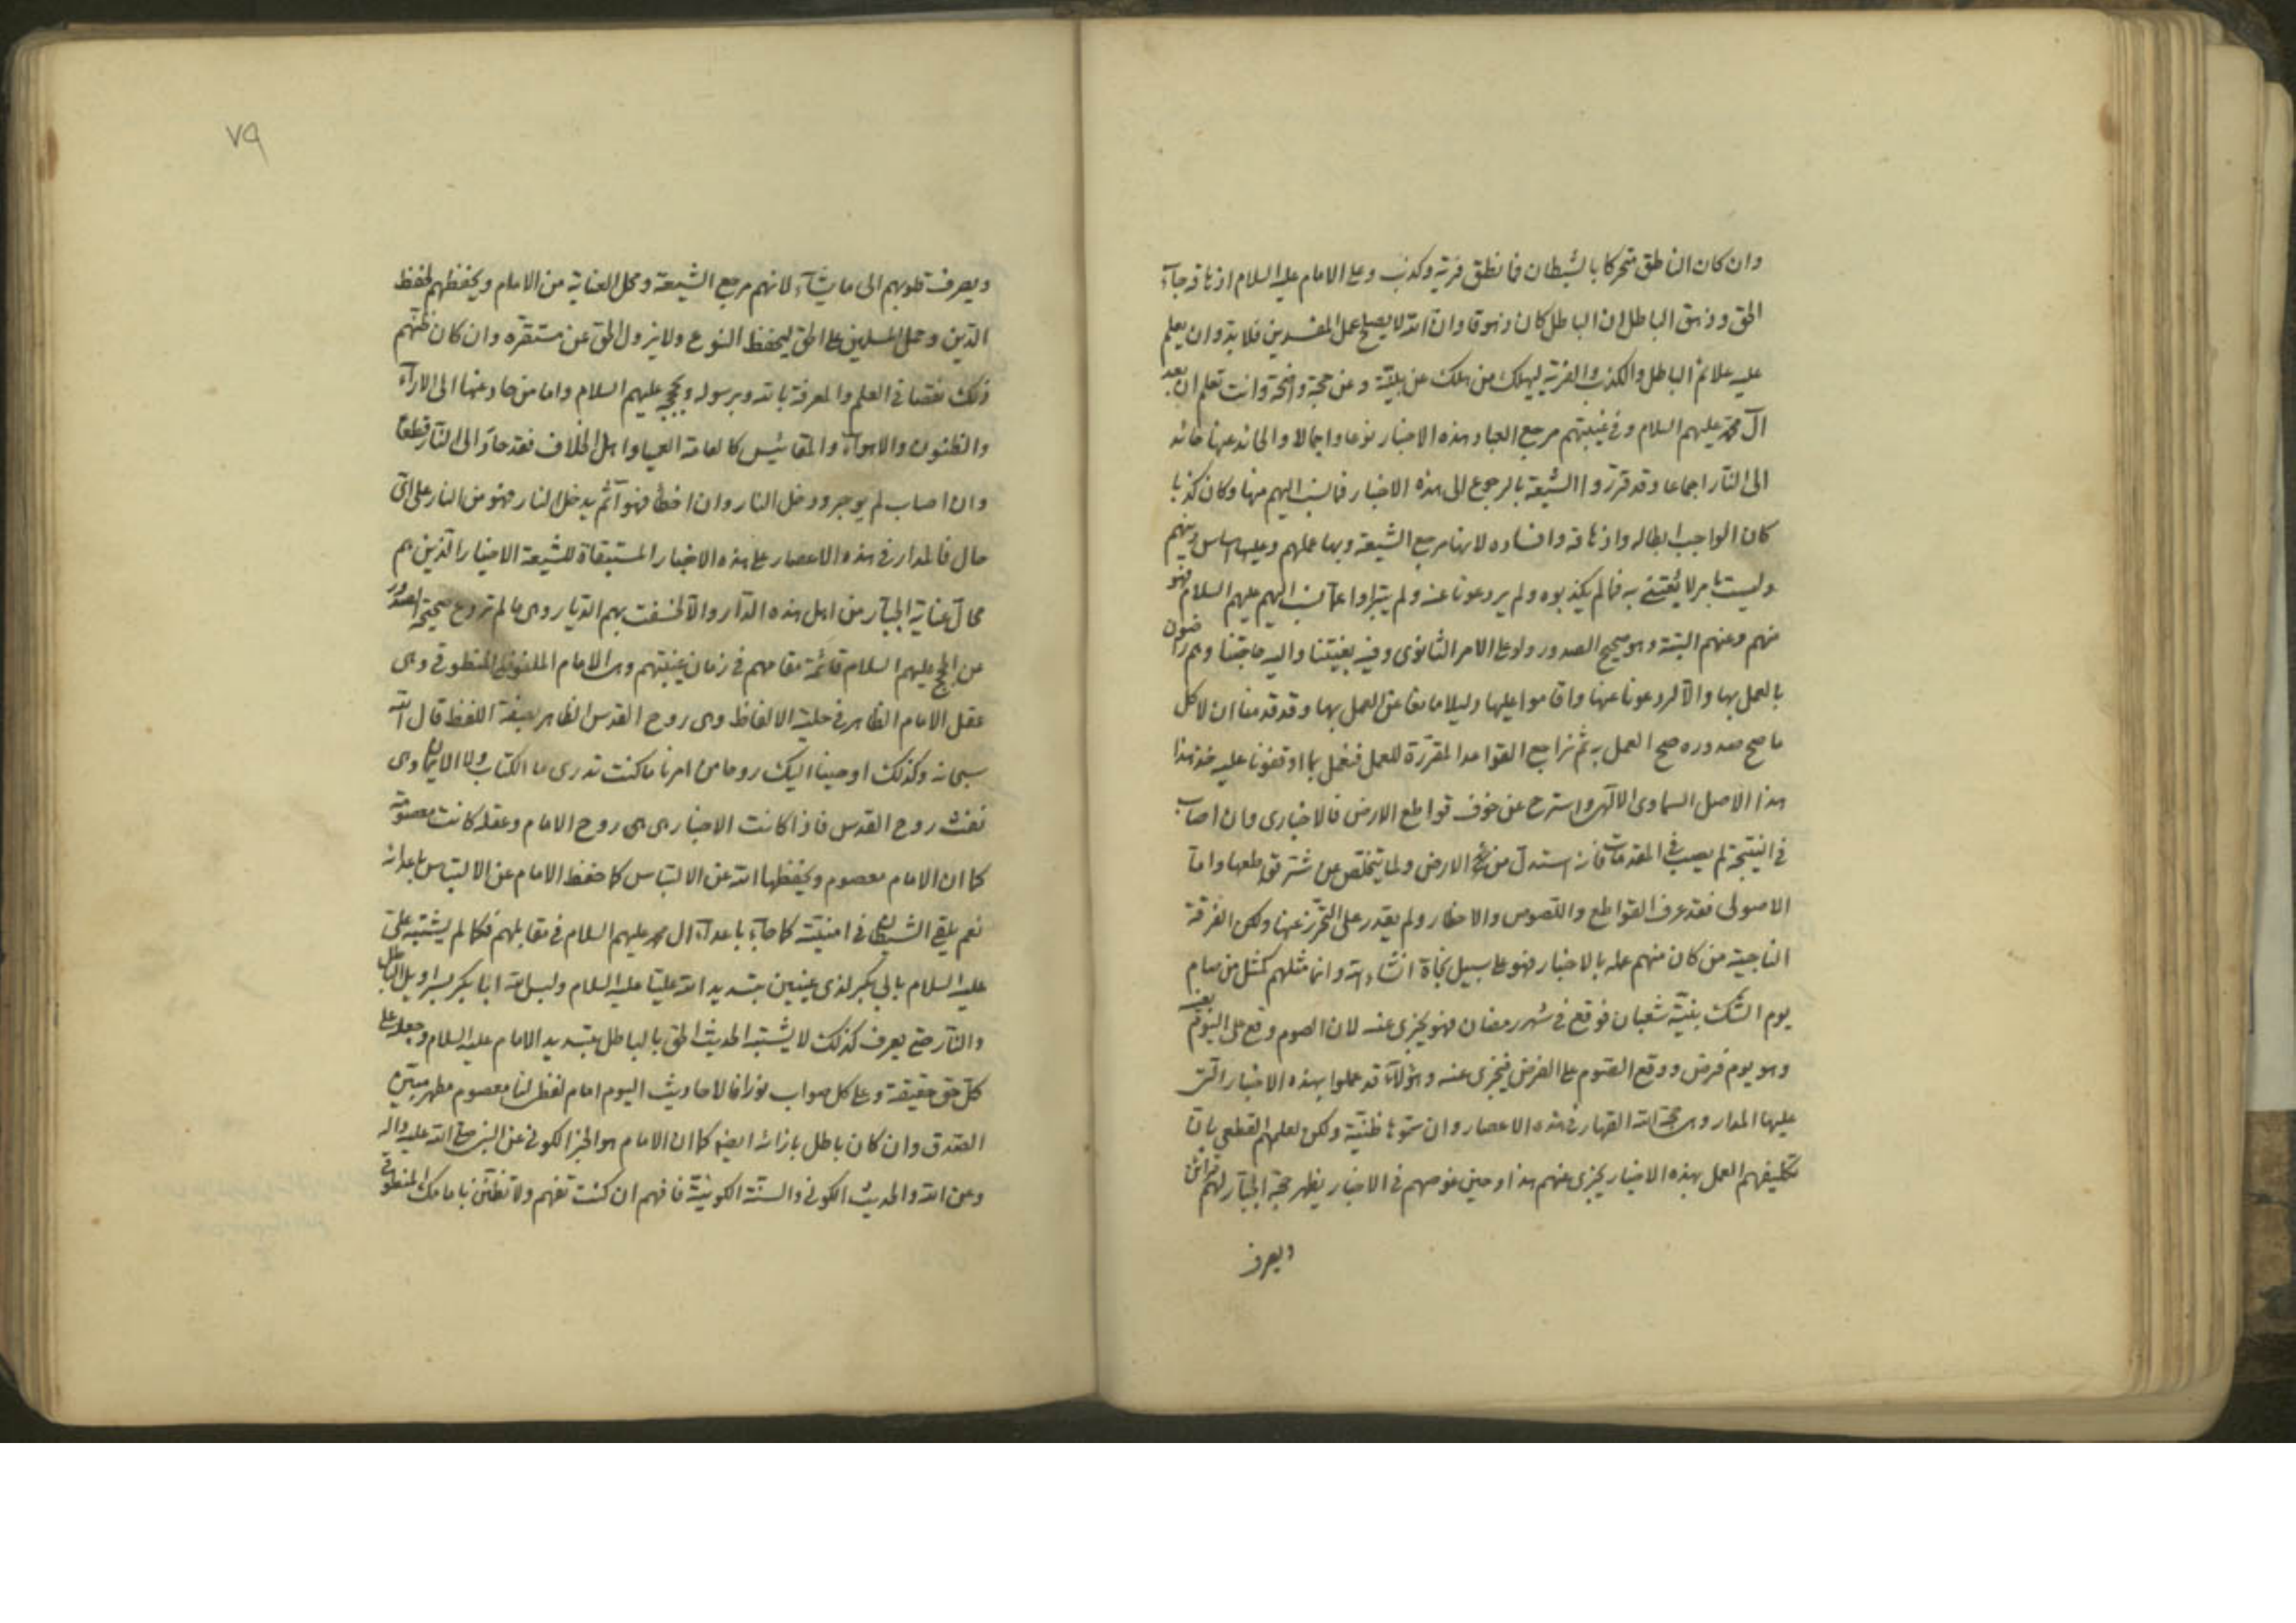 وان كان الناطق متحركا بالشيطان فما نطق فرية وكذب وعلى الامام عليه السلام ازهاقه جاء
الحق وزهق الباطل ان الباطل كان زهوقا وان الله لا يصلح عمل المفسدين فلا بد وان يعلم
عليه علائم الباطل والكذب والفرية ليهلك من هلك عن بينة وعن حجة واضحة وانت تعلم ان بعد
آل محمد عليهم السلام وفي غيبتهم مرجع العباد هذه الاخبار نوعا واجمالا والحائد عنها حائد
الى النار اجماعا وقد قرروا الشيعة بالرجوع الى هذه الاخبار فما نسب اليهم منها وكان كذبا
كان الواجب ابطاله وازهاقه وافساده لانها مرجع الشيعة وبها عملهم وعليه اساس دينهم
وليست بامر لا يعتنى به فما لم يكذبوه ولم يردعونا عنه ولم يتبرأوا عما نسب اليهم عليهم السلام فهو
منهم وعنهم البتة وهو صحيح الصدور ولو على الامر الثانوي وفيه بغيتنا واليه حاجتنا وهم راضون
بالعمل بها والا لردعونا عنها واقاموا عليها دليلا مانعا عن العمل بها وقد قدمنا ان لا كل
ما صح صدوره صح العمل به ثم نراجع القواعد المقررة للعمل فنعمل بما اوقفونا عليه خذ هذا
هذا الاصل السماوي الالهي واسترح عن خوف قواطع الارض فالاخباري وان اصاب
في النتيجة لم يصب في المقدمات فانه استدل من الارض ولما يتخلص عن شر قواطعها واما
الاصولي فقد عرف القواطع واللصوص والاخطار ولم يقدر على التحرز عنها ولكن الفرقة
الناجية من كان منهم عمله بالاخبار فهو على سبيل نجاة انشاء الله وانما مثلهم كمثل من صام
يوم الشك بنية شعبان فوقع في شهر رمضان فهو يجزي عنه لان الصوم وقع على اليوم بعينه
وهو يوم فرض ووقع الصوم على الفرض فيجزي عنه وهؤلاء قد عملوا بهذه الاخبار التي
عليها المدار وهي حجة الله القهار في هذه الاعصار وان سموها ظنية ولكن لعلمهم القطعي بان
تكليفهم العمل بهذه الاخبار يجزي عنهم هذا وحين غوصهم في الاخبار يظهر حجة الجبار لهم قرائن
ويصرف
٧٩
ويصرف قلوبهم الى ما يشاء لانهم مرجع الشيعة ومحل العناية من الامام ويحفظهم لحفظ
الدين وحمل المسلمين على الحق ليحفظ النوع ولا يزول الحق عن مستقره وان كان ظنهم
ذلك نقصا في العلم والمعرفة بالله وبرسوله وبحججه عليهم السلام واما من حاد عنها الى الاراء
والظنون والاهواء والمقائيس كالعامة العميا واهل الخلاف فقد حاد الى النار قطعا
وان اصاب لم يوجر ودخل النار وان اخطأ فهو آثم يدخل النار فهو من النار على اي
حال فالمدار في هذه الاعصار على هذه الاخبار المستبقاة للشيعة الاخيار الذين هم
محال عناية الجبار من اهل هذه الدار والا لخسفت بهم الديار وهي ما لم تردع صحيحة الصدور
عن الحجج عليهم السلام قائمة مقامهم في زمان غيبتهم وهي الامام الملفوظي المنطوقي وهي
عقل الامام الظاهر في حلية الالفاظ وهي روح القدس الظاهر بصفة اللفظ قال الله
سبحانه وكذلك اوحينا اليك روحا من امرنا ما كنت تدري ما الكتاب ولا الايمان وهي
نفث روح القدس فاذا كانت الاخبار هي هي روح الامام وعقله كانت معصومة
كما ان الامام معصوم ويحفظها الله عن الالتباس كما حفظ الامام عن الالتباس باعدائه
نعم يلقي الشيطان في امنيته كما جاء باعداء آل محمد عليهم السلام في مقابلهم فكما لم يشتبه علي
عليه السلام بابي بكر لذي عينين بتسديد الله عليا عليه السلام ولبس الله ابا بكر سرابيل الباطل
والنار حتى يعرف كذلك لا يشتبه الحديث الحق بالباطل بتسديد الامام عليه السلام وجعله على
كل حق حقيقة وعلى كل صواب نورا فالاحاديث اليوم امام لفظي لنا معصوم مطهر مبين
الصدق وان كان باطل بازائه ايضا كما ان الامام هو الخبر الكوني عن النبي صلى الله عليه وآله
وعن الله والحديث الكوني والسنة الكونية فافهم ان كنت تفهم ولا تظنن بامامك المنطوقي